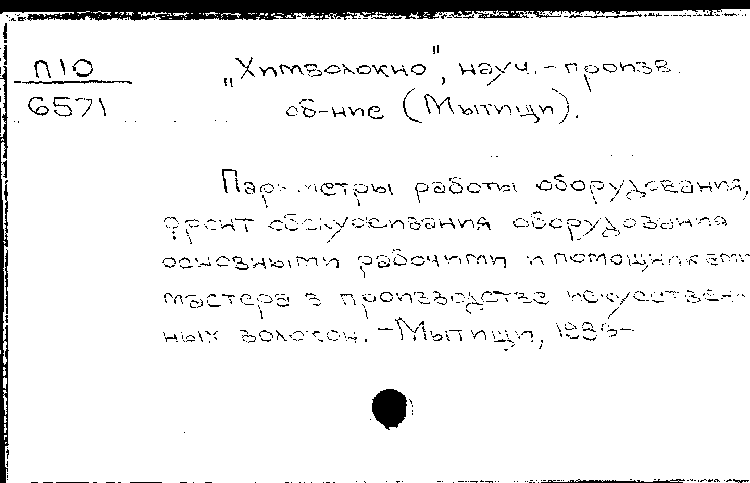 П10
6571
„Химволокно", науч.-произв.
об-ние (Мытищи).
Параметры работы оборудования,
фронт обслуживания оборудования
основными рабочими и помощниками
мастера в производстве искусствен-
ных волокон. - Мытищи,